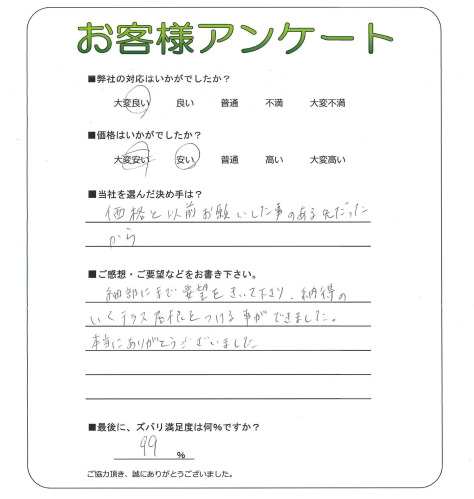 お客様アンケート
■弊社の対応はいかがでしたか？
大変良い 良い 普通 不満 大変不満
■価格はいかがでしたか？
大変安い 安い 普通 高い 大変高い
■当社を選んだ決め手は？
価格と以前お願いした事のある先だった
から
■ご感想・ご要望などをお書き下さい。
細部にまで要望をきいて下さり、納得の
いくテラス屋根をつける事ができました。
本当にありがとうございました
■最後に、ズバリ満足度は何%ですか？
99 %
ご協力頂き、誠にありがとうございました。